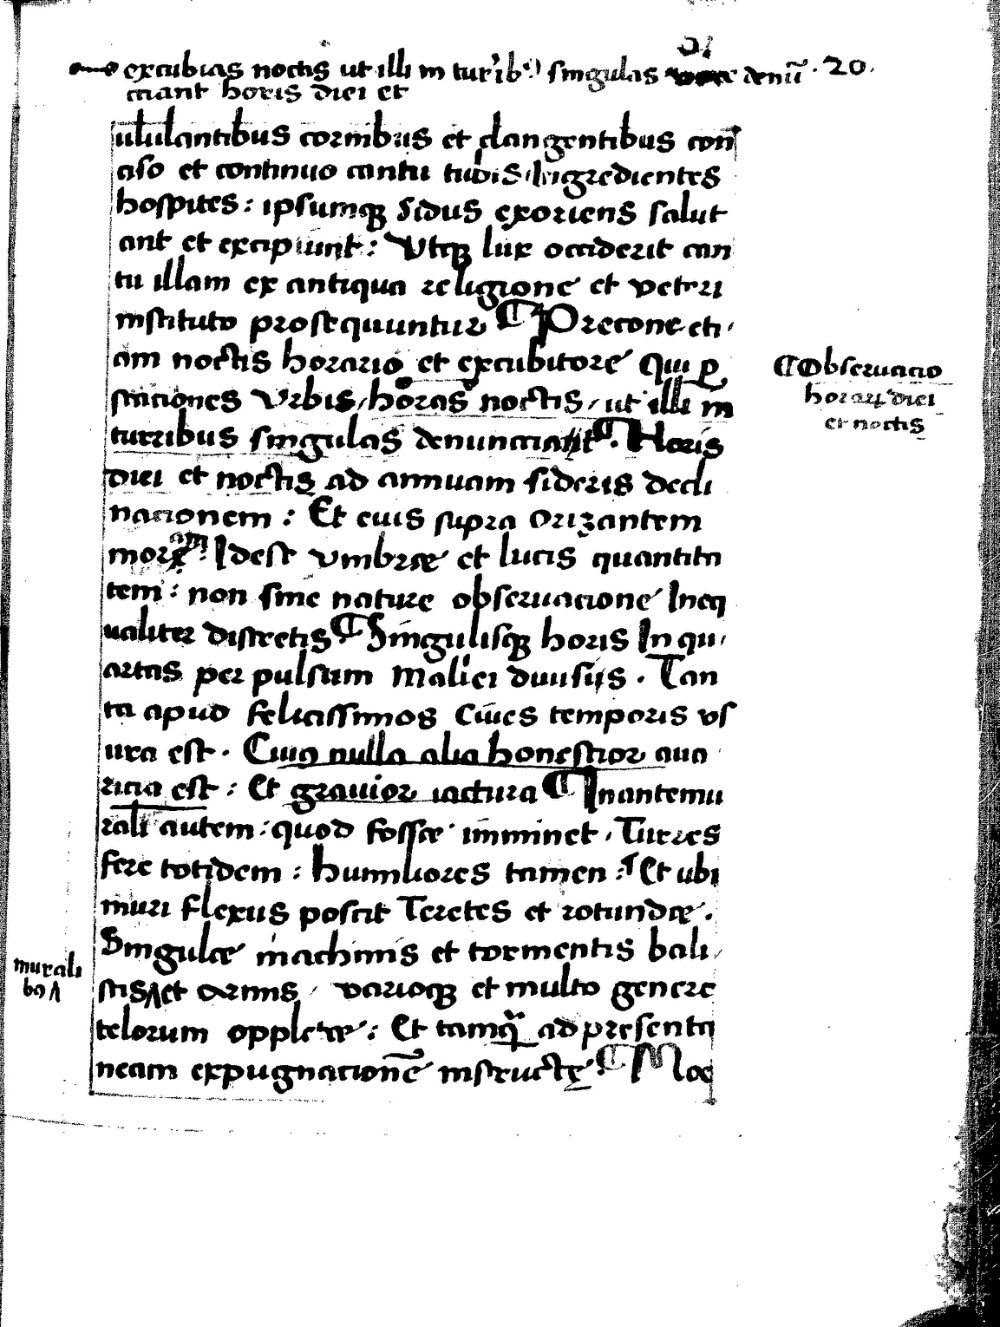 excubias noctis ut illi in turrib9 singulas denū 20.
ciant horis diei et
ululantibus cornibus et clangentibus con
aso et continuo cantu tubis. Ingredientes
hospites: ipsumqꝫ sidus exoriens salut
ant et excipiunt: Vtqꝫ lux occiderit can
tu illam ex antiqua religione et veteri
instituto prosequuntur ¶ Precone eti
am noctis horario et excubitore Qui ꝑ
stationes Vrbis, horas noctis, ut illi in
turribus singulas denunciant. ¶ Horis
diei et noctis ad annuam sideris decli
nationem: Et eius supra Orizantem
moram: Idest vmbrae et lucis quantita
tem: non sine nature obseruatione Ineq
ualiter discretis ¶ Singulisqꝫ horis In qu
artas per pulsum Malici diuisijs. Tan
ta apud felicissimos Ciues temporis vs
ura est. Cui9 nulla alia honestior aua
ritia est: Et grauior iactura ¶ Inantemu
rali autem: quod fossae imminet. Turres
fere totidem: humiliores tamen: Et ubi
muri flexus poscit Teretes et rotundae.
Singulae machinis et tormentis bali
stis et armis, varioqꝫ et multo genere
telorum oppletae: Et tamqᷓ ad presenta
neam expugnationē instructę: ¶ Moe
¶ Obseruatio
horaꝝ diei
et noctis
murali
b9